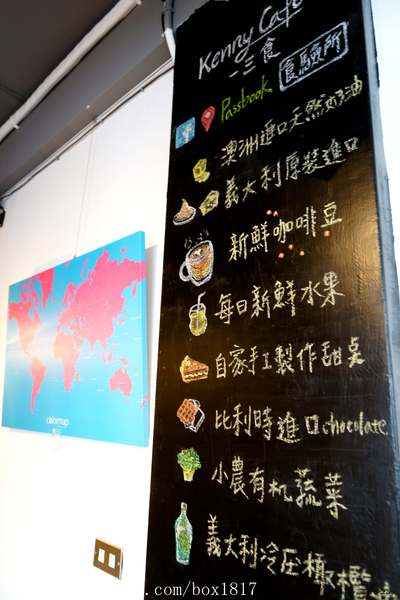 Kenny Café
一三食
食驗所
Passbook
澳洲進口天然奶油
義大利原裝進口
新鮮咖啡豆
每日新鮮水果
自家手工製作甜點
比利時進口chocolate
小農有机蔬菜
義大利冷圧橄欖油
colormap
.com/box1817